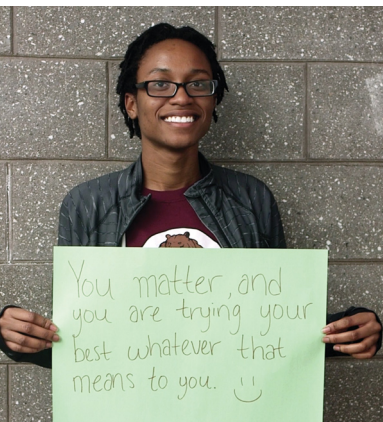 You matter, and
you are trying your
best whatever that
means to you. :)